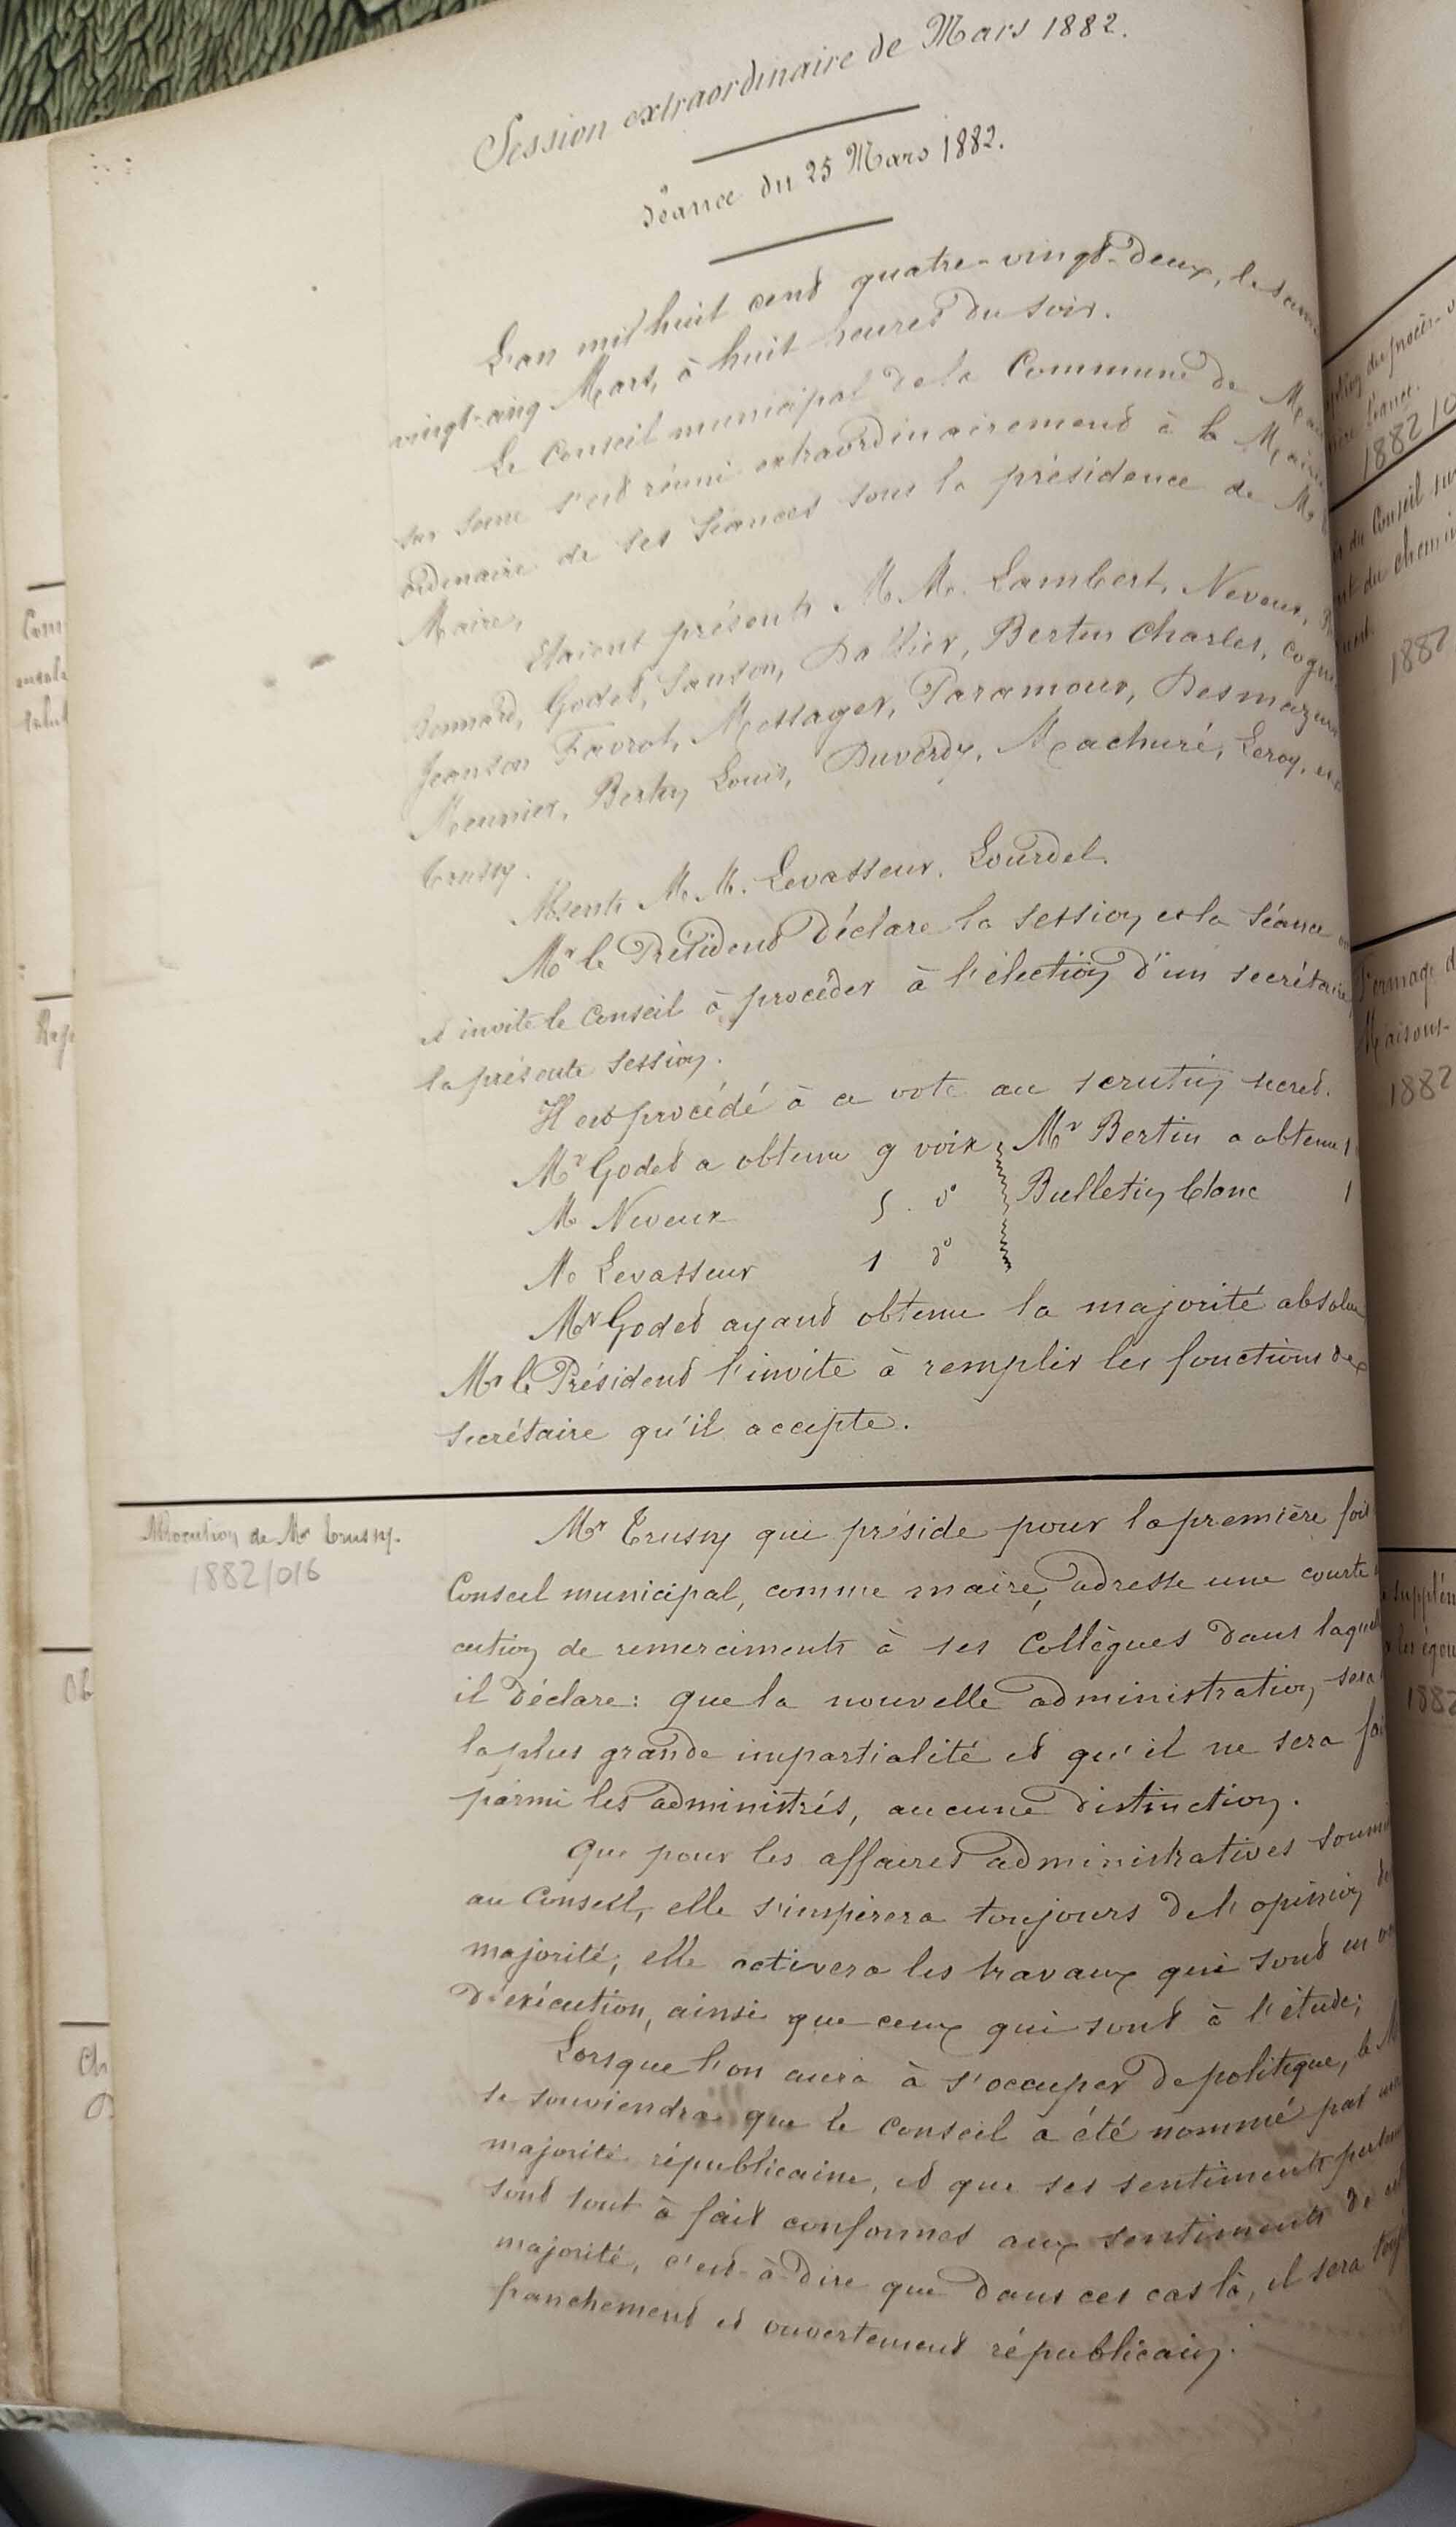 Session extraordinaire de Mars 1882.
Séance du 25 Mars 1882.
L'an mil huit cent quatre-vingt-deux, le sam
vingt-cinq Mars, à huit heures du soir.
Le Conseil municipal de la Commune de
sur Seine s'est réuni extraordinairement à la Mairie
ordinaire de ses séances sous la présidence de Mr
Maire,
Etaient présents M.M. Lambert, Neveux,
Bonnard, Godet, Sanson, Dallier, Bertin Charles,
Jeanson Favrot, Messager, Paramour, Desmazur
Meunier, Bertin Louis, Duverdy, Machuré, Leroy, et
Trussy.
Absents M.M. Levasseur, Lourdel.
Mr le Président déclare la session et la séance
et invite le Conseil à procéder à l'élection d'un secrétaire
la présente session.
Il est procédé à ce vote au scrutin secret.
Mr Godet a obtenu 9 voix Mr Bertin a obtenu 1
M. Neveux 5 do Bulletin blanc 1
M. Levasseur 1 do
Mr Godet ayant obtenu la majorité absolue
Mr le Président l'invite à remplir les fonctions de
secrétaire qu'il accepte.
Allocution de Mr Trussy.
1882/016
Mr Trussy qui préside pour la première fois
Conseil municipal, comme maire, adresse une courte
cution de remerciments à ses Collègues dans laquel
il déclare: que la nouvelle administration sera
la plus grande impartialité et qu'il ne sera fai
parmi les administrés, aucune distinction.
Que pour les affaires administratives soumi
au Conseil, elle s'inspirera toujours de l'opinion de
majorité, elle activera les travaux qui sont en
d'exécution, ainsi que ceux qui sont à l'étude;
Lorsque l'on aura à s'occuper de politique, le M
se souviendra que le Conseil a été nommé par une
majorité républicaine, et que ses sentiments
sont tout à fait conformes aux sentiments de
majorité, c'est-à-dire que dans ces cas là, il sera
franchement et ouvertement républicain.
1882
du Conseil
du chemin
1882
Maisons-
1882
1882